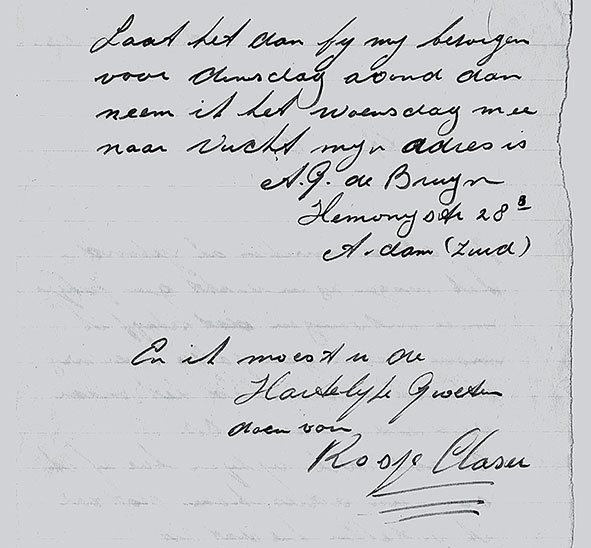 Laat het dan by my bezorgen
voor dinsdag avond dan
neem ik het woensdag mee
naar Vucht myn adres is
A.G. de Bruyn
Hemonystr 28 3
A.dam (Zuid)
En ik moest u de
Hartelyke Groeten
doen van
Roosje Glaser